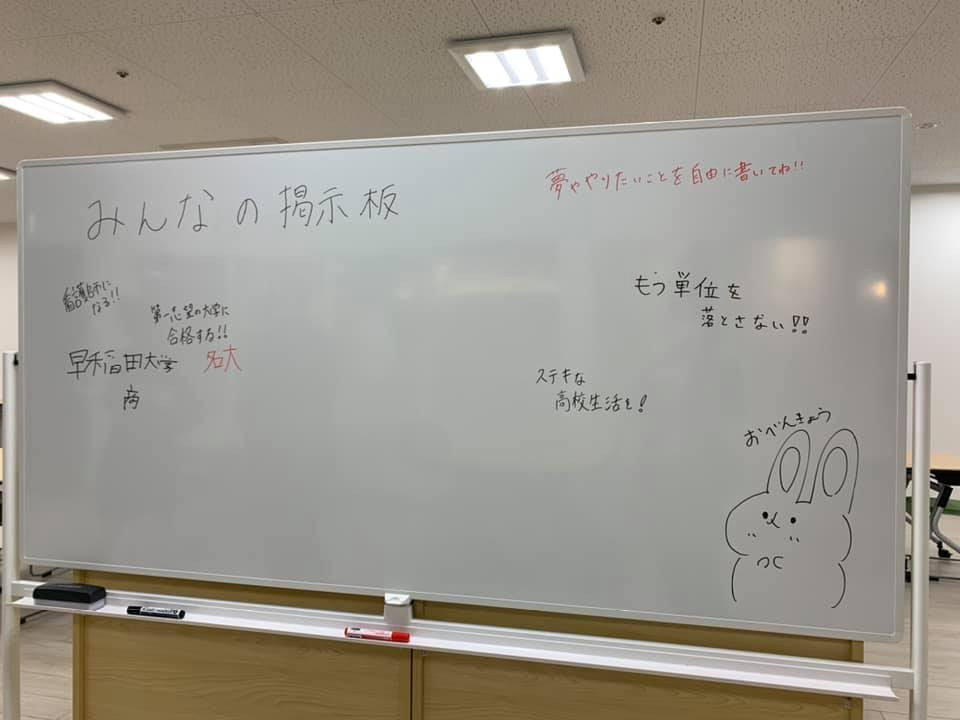 みんなの掲示板
夢ややりたいことを自由に書いてね!!
看護師に
なる!!
第一志望の大学に
合格する!!
早稲田大学
商
名大
もう単位を
落とさない!!
ステキな
高校生活を!
おべんきょう